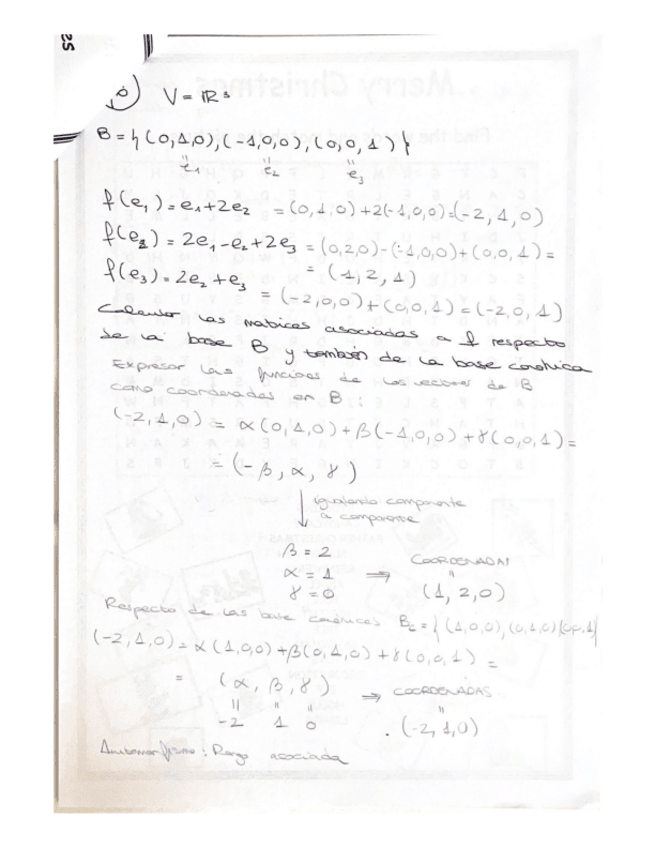 V = ℝ³
B = { (0,1,0), (-1,0,0), (0,0,1) }
e₁ e₂ e₃
f(e₁) = e₁ + 2e₂ = (0,1,0) + 2(-1,0,0) = (-2,1,0)
f(e₂) = 2e₁ - e₂ + 2e₃ = (0,2,0) - (-1,0,0) + (0,0,1) =
= (1,2,1)
f(e₃) = 2e₂ + e₃ = (-2,0,0) + (0,0,1) = (-2,0,1)
Calcular las matrices asociadas a f respecto
de la base B y también de la base canónica
Expresar las funciones de los vectores de B
como coordenadas en B:
(-2,1,0) = α(0,1,0) + β(-1,0,0) + γ(0,0,1) =
= (-β, α, γ)
↓ igualando componente
a componente
β = 2
α = 1 ⇒ COORDENADAS
γ = 0 (1,2,0)
Respecto de las base canónicas Bc = { (1,0,0), (0,1,0) (0,0,1)
(-2,1,0) = α(1,0,0) + β(0,1,0) + γ(0,0,1) =
= (α, β, γ) ⇒ COORDENADAS
-2 1 0 (-2,1,0)
Rango asociada